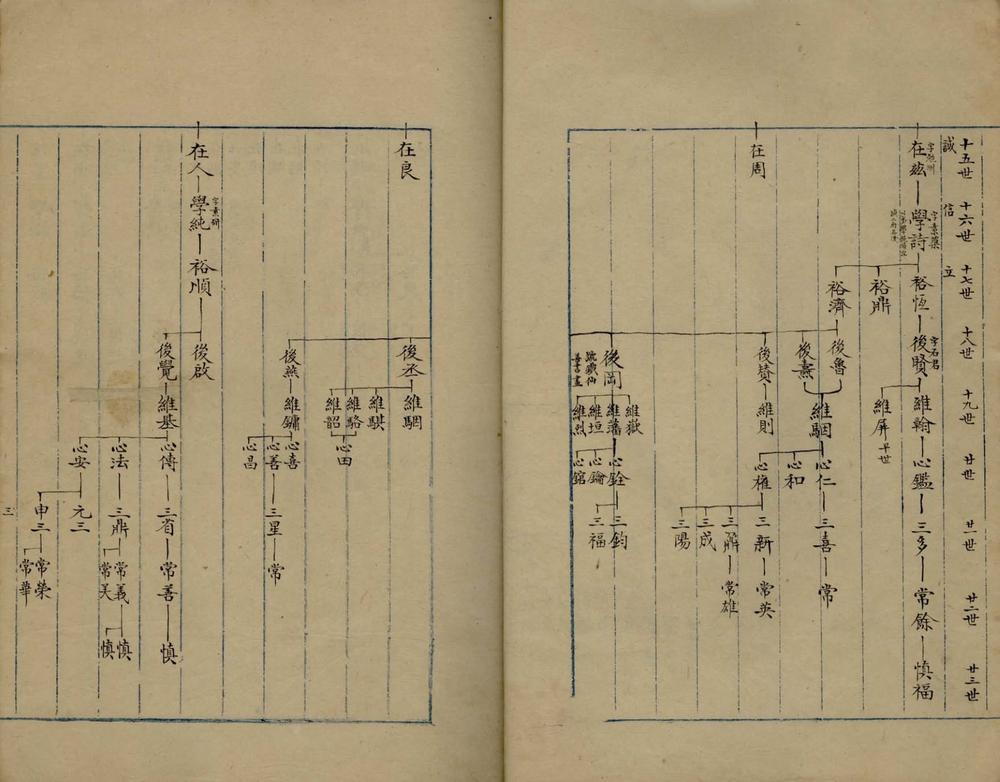 十五世
十六世
十七世
十八世
十九世
廿世
廿一世
廿二世
廿三世
誠
信
立
在茲
學詩
字素蘗
裕恆
後賢
字石君
維翰
心鑑
三多
常餘
慎福
維屏
早世
裕鼎
裕濟
後魯
後燾
維駰
心仁
三喜
常
心和
在周
後贊
維則
心權
三新
常英
三鼐
常雄
三成
三陽
後岡
號鐵仙
善書畫
維嶽
維藩
心銓
三鈞
三福
維垣
心鑰
維烈
心錧
在良
後丞
維駰
維騏
維駱
維韶
心田
後燕
維鏞
心喜
三星
常
心善
心昌
在人
學純
字素研
裕順
後啟
後覺
維基
心傳
三省
常善
慎
心法
三鼎
常義
慎
慎
心安
元三
申三
常榮
常華
三